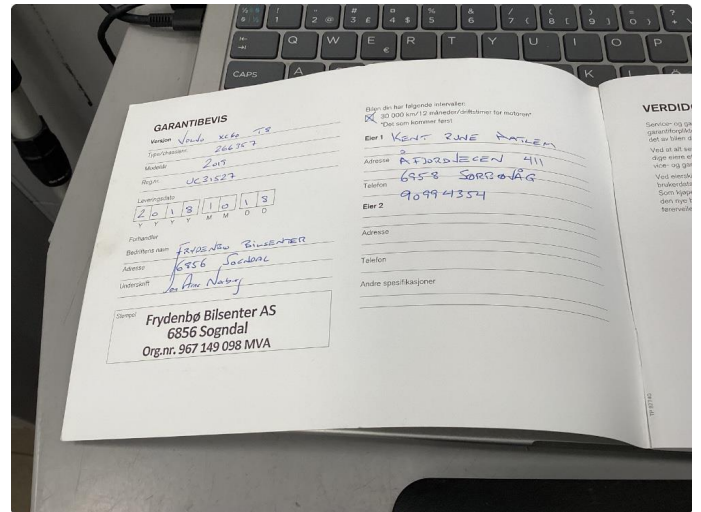 GARANTIBEVIS
Version Volvo XC60 T8
Type/chassisnr. 266357
Modellår 2019
Reg.nr. UC31527
Leveringsdato
2 0 1 8 1 0 1 8
Y Y Y Y M M D D
Forhandler
Bedriftens navn FRYDENBØ BILSENTER
Adresse 6856 SOGNDAL
Underskrift
Stempel
Frydenbø Bilsenter AS
6856 Sogndal
Org.nr. 967 149 098 MVA
Bilen din har følgende intervaller:
30 000 km/12 måneder/driftstimer for motoren*
*Det som kommer først
Eier 1 KENT RUNE
Adresse ÅFJORDVEGEN 411
6958 SØRBØVÅG
Telefon 90994354
Eier 2
Adresse
Telefon
Andre spesifikasjoner
VERDID
Service- og ga
garantiforplikt
det av bilen d
Ved at alt se
dige eiere et
vice- og gar
Ved eiersk
brukerdata
Som kjøpe
den nye t
førerveile
Q W E R T Y U I O P
€
CAPS A K L